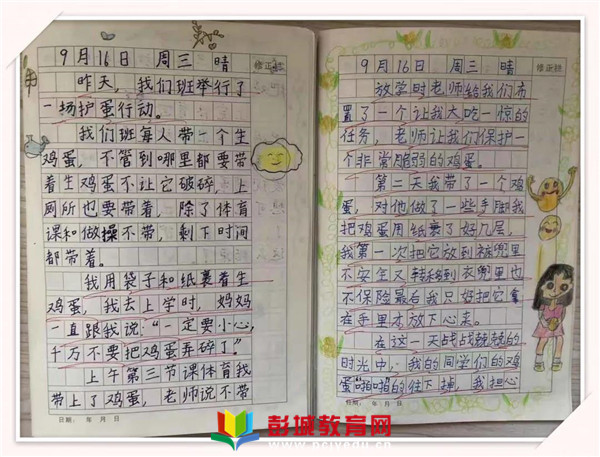 9月16日 周三 晴 修正栏
昨天,我们班举行了
一场护蛋行动。
我们班每人带一个生
鸡蛋,不管到哪里都要带
着生鸡蛋不让它破碎,上
厕所也要带着,除了体育
课和做操不带,剩下时间
都带着。
我用袋子和纸裹着生
鸡蛋,我去上学时,妈妈
一直跟我说:“一定要小心,
千万不要把鸡蛋弄碎了”
上午第三节课体育我
带上了鸡蛋,老师说不带
日期: 年 月 日
9月16日 周三 晴 修正栏
放学时老师给我们布
置了一个让我大吃一惊的
任务,老师让我们保护一
个非常脆弱的鸡蛋。
第二天我带了一个鸡
蛋,对他做了一些手脚我
把鸡蛋用纸裹了好几层,
我第一次把它放到裤兜里
不安全又转移到衣兜里也
不保险最后我只好把它拿
在手里才放下心来。
在这一天战战兢兢的
时光中,我的同学们的鸡
蛋“啪啪的往下掉,我担心
日期: 年 月 日
彭城教育网